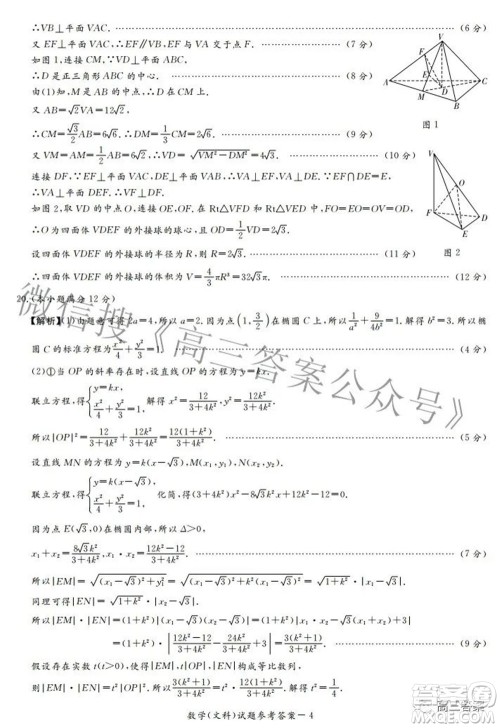 ∴VB⊥平面 VAC, ……(6 分)
又 EF⊥平面 VAC,∴EF∥VB,EF 与 VA 交于点 F. ……(7 分)
如图 1,∵VD⊥平面 ABC,∴VD⊥CM,VD⊥DE.
∴D 是正三角形 ABC 的中心. ……(8 分)
由(1)知,M 是 AB 的中点,∴CD=2DM.
又∵AB=√2VA=12√2,
∴CM=√3/2 AB=6√6.∴DM=1/3 CM=2√6. ……(9 分)
又∵VM=AM=1/2 AB=6√2,∴VD=√(VM²−DM²)=4√3. ……(10 分)
连接 DF.∵VA⊥EF,VA⊥DE,EF∩DE=E,
∴VA⊥平面 DEF,∴VA⊥DF.
如图 2,取 VD 的中点 O,连接 OE,OF.在 Rt△VFD 和 Rt△VED 中,FO=EO=OV=DO,
∴O 为四面体 VDEF 的外接球的球心,且 OV=2√3.
设四面体 VDEF 的外接球的半径为 R,则 R=2√3. ……(11 分)
∴四面体 VDEF 的外接球的体积为 V=4/3 πR³=32√3π. ……(12 分)
V
A
F
E
C
D
M
B
图 1
V
O
F
D
E
图 2
20.(本小题满分 12 分)
【解析】(1)由题意可得 2a=4,所以 a=2.因为点(1,3/2)在椭圆 C 上,所以 1/a²+9/4b²=1.解得 b²=3.所以椭
圆 C 的标准方程为 x²/4+y²/3=1. ……(4 分)
(2)①当 OP 的斜率存在时,设直线 OP 的方程为 y=kx,
联立方程,得{y=kx, x²/4+y²/3=1. 解得 x²=12/(3+4k²),y²=12k²/(3+4k²).
所以|OP|²=12/(3+4k²)+12k²/(3+4k²)=12(1+k²)/(3+4k²). ……(5 分)
设直线 MN 的方程为 y=k(x−√3),M(x₁,y₁),N(x₂,y₂),
联立方程,得{y=k(x−√3), x²/4+y²/3=1. 化简,得(3+4k²)x²−8√3k²x+12k²−12=0.
因为点 E(√3,0)在椭圆内部,所以 Δ>0.
x₁+x₂=8√3k²/(3+4k²),x₁·x₂=(12k²−12)/(3+4k²). ……(7 分)
所以|EM|=√((x₁−√3)²+y₁²)=√((x₁−√3)²+k²(x₁−√3)²)=√(1+k²)|x₁−√3|.
同理可得|EN|=√(1+k²)|x₂−√3|.
所以|EM|·|EN|=(1+k²)|(x₁−√3)(x₂−√3)|=(1+k²)|x₁x₂−√3(x₁+x₂)+3|
=(1+k²)·|(12k²−12)/(3+4k²)−24k²/(3+4k²)+3|=3(1+k²)/(3+4k²). ……(9 分)
假设存在实数 t(t>0),使得|EM|,t|OP|,|EN|构成等比数列.
所以|EM|·|EN|=t²|OP|²,即 3(k²+1)/(3+4k²)=t²·12(k²+1)/(3+4k²).
数学(文科)试题参考答案-4
微信搜《高三答案公众号》
高三答案